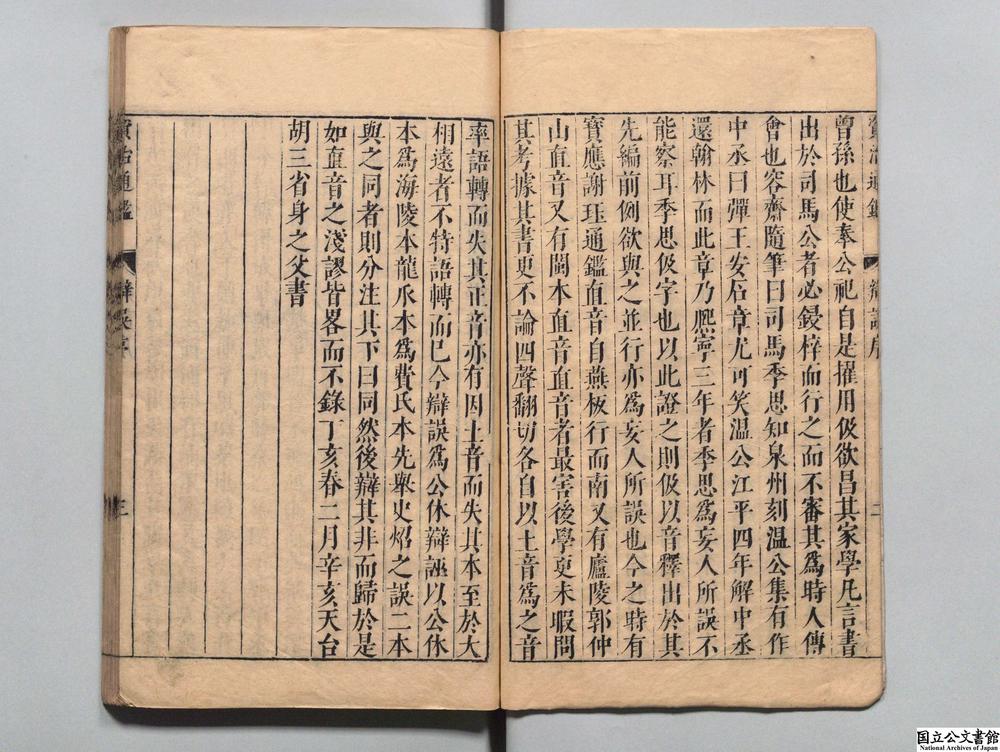 曾孫也使奉公祀自是擢用伋欲昌其家學凡言書
出於司馬公者必鋟梓而行之而不審其爲時人傅
會也容齋隨筆曰司馬季思知泉州刻溫公集有作
中丞日彈王安石章尤可笑溫公江平四年解中丞
還翰林而此章乃熈寧三年者季思爲妄人所誤不
能察耳季思伋字也以此證之則伋以音釋出於其
先編前例欲與之並行亦爲妄人所誤也今之時有
寳應謝珏通鑑直音自燕板行而南又有廬陵郭仲
山直音又有閩本直音直音者最害後學更未暇問
其考據其書更不論四聲翻切各自以土音爲之音
率語轉而失其正音亦有因土音而失其本至於大
相遠者不特語轉而已今辯誤爲公休辯誣以公休
本爲海陵本龍爪本爲費氏本先舉史炤之誤二本
與之同者則分注其下曰同然後辯其非而歸於是
如直音之淺謬皆畧而不錄丁亥春二月辛亥天台
胡三省身之父書
資治通鑑
辯誤序
二
資治通鑑
辯誤序
三
国立公文書館
National Archives of Japan